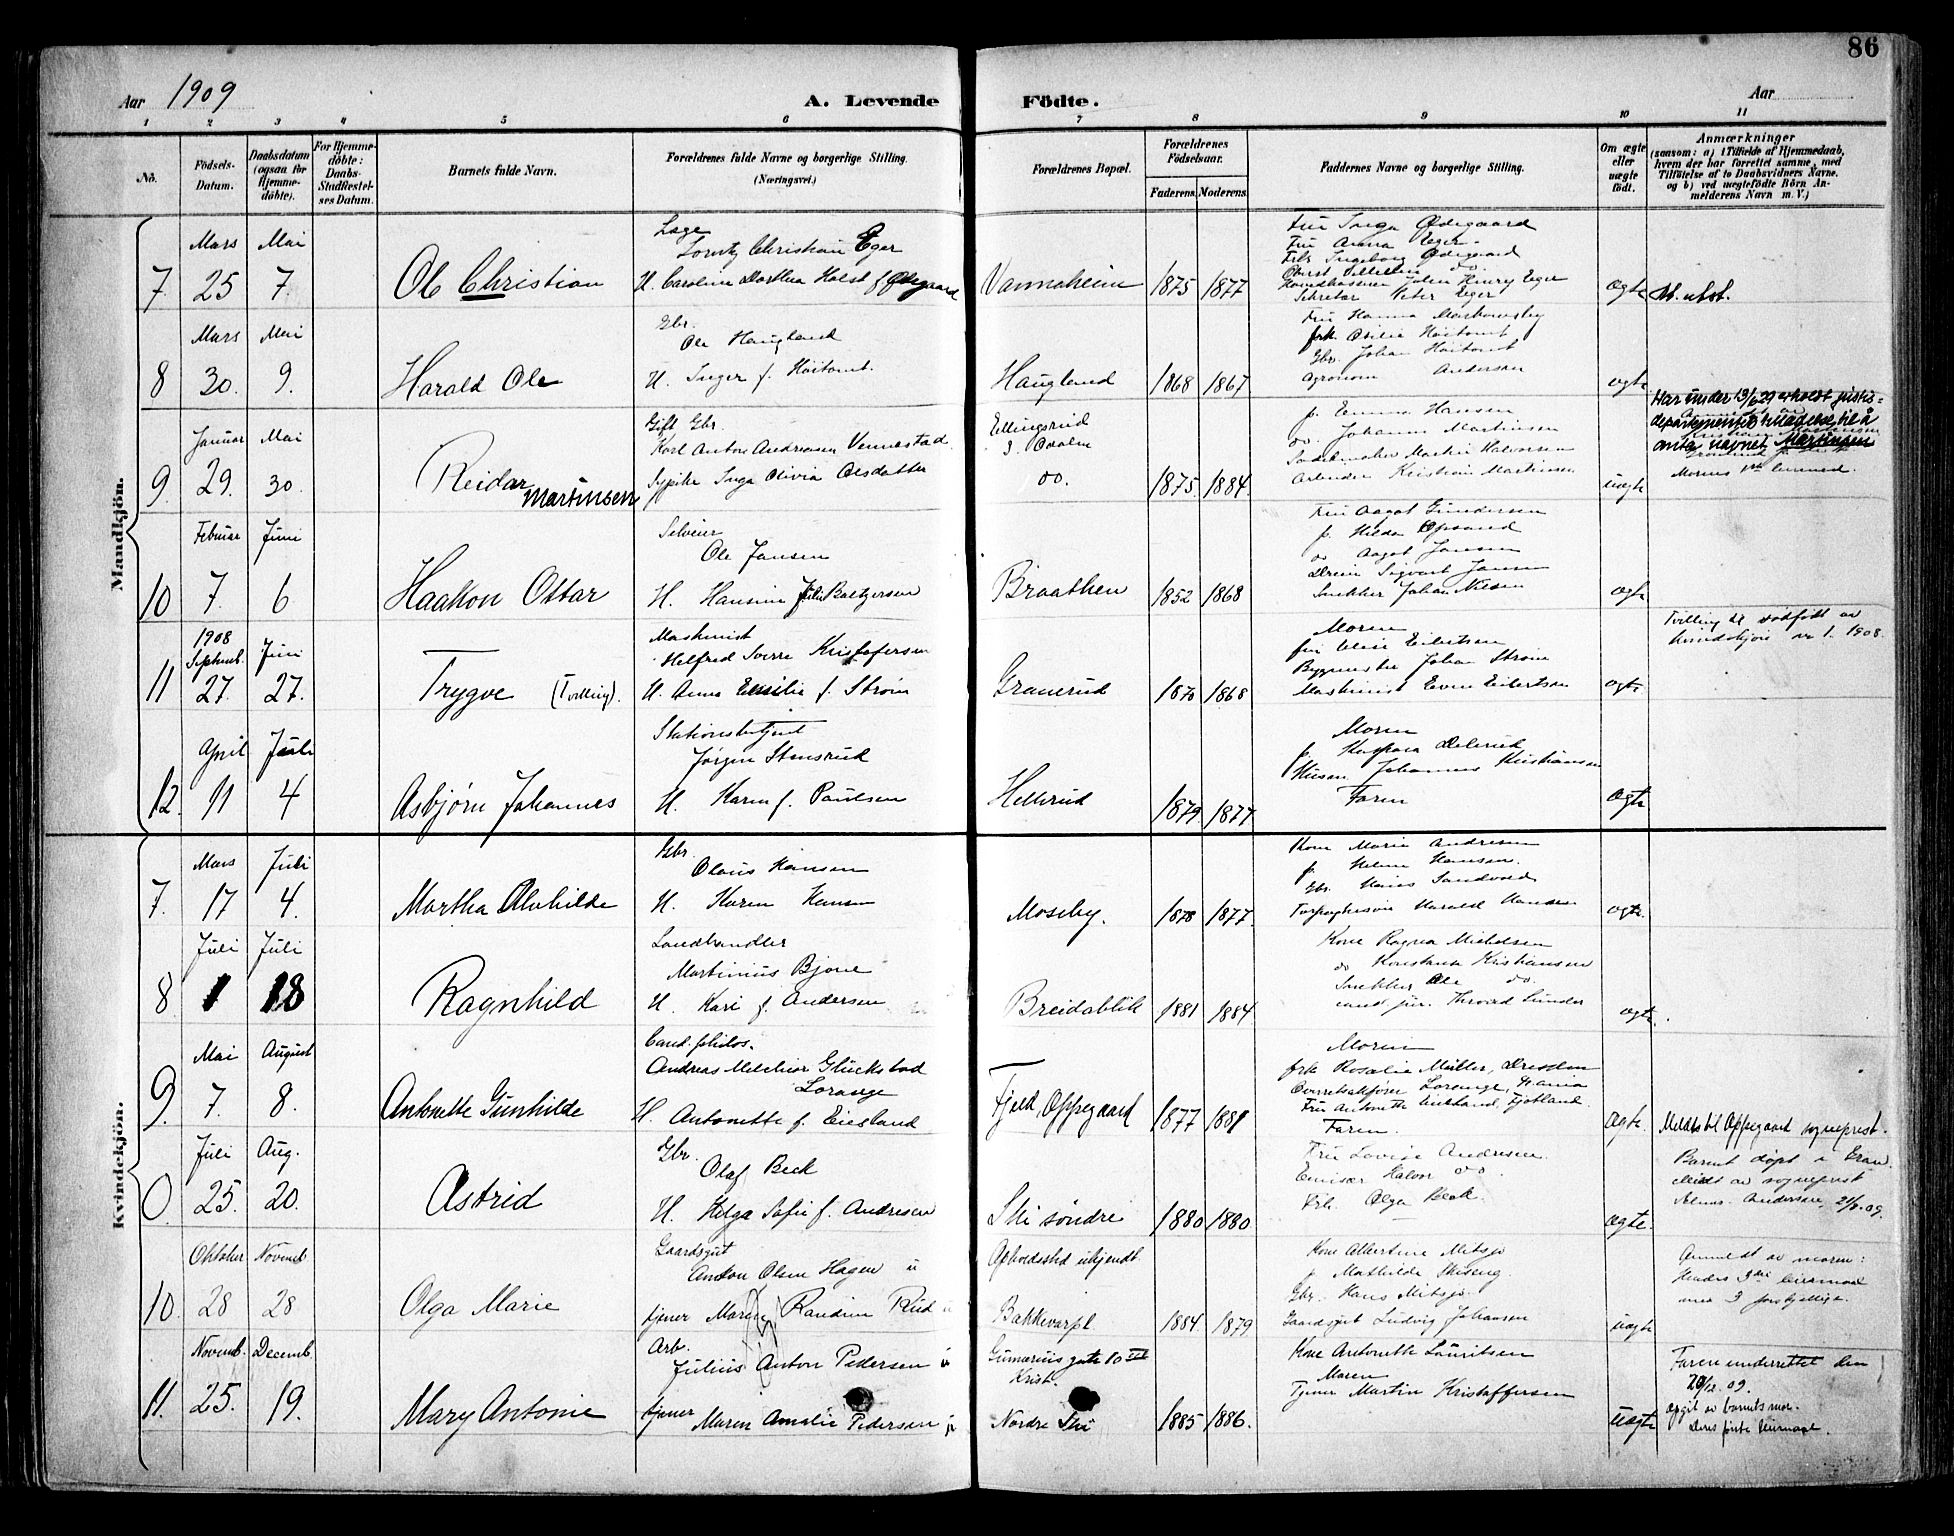 86
Aar 1909
A. Levende Födte.
Aar
1 2 3 4 5 6 7 8 9 10 11
No.
Födsels-
Datum.
Daabsdatum
(ogsaa for
Hjemme-
döbte).
For Hjemme-
döbte:
Daabs-
Stadfæstel-
ses Datum.
Barnets fulde Navn.
Forældrenes fulde Navne og borgerlige Stilling.
(Næringsvei.)
Forældrenes Bopæl.
Forældrenes
Födselsaar.
Faderens. Moderens.
Faddernes Navne og borgerlige Stilling.
Om ægte
eller
uægte
födt.
Anmærkninger
(saasom: a) i Tilfælde af Hjemmedaab,
hvem der har forrettet samme, med
Tilföielse af to Daabsvidners Navne,
og b) ved uægtefödte Börn An-
melderens Navn m. V.)
Mandkjön.
7. Mars 25 Mai 7.
Ole Christian
Læge
Christian Eger
H. Caroline Dorthea Holst f.
Vannaheim
1875 1877
Fru Inga Ødegaard
Fru Anna Eger
Frk. Ingeborg Ødegaard
John Henry Eger
Sekretær Peter Eger
ægte
8 Mars 30. Mai 9.
Harald Ole
Gbr.
Ole Haugland
H. Inger f. Høitomt.
Haugland
1868 1867
Fru Hanna
frk. Otilie Høitomt
Gbr. Johan Høitomt
Agronom Andersen
ægte
9. Januar 29. Mai 30.
Reidar Martinsen
Gift Gbr.
Karl Anton Andreasen Vennestad
Sypike Inga Olivia Olsdatter
Ellingsrud
do.
1875 1884.
p. Emma Hansen
do. Johanna Martinsen
Martin Halvorsen
Arbeider Kristian Martinsen
uægte
Har under 13/6 29 erholdt justis-
departementets tilladelse til å
anta navnet Martinsen
Morens 1ste leiermaal.
10 Februar 7. Juni 6
Haakon Ottar
Selveier
Ole Jansen
H. Hansine Julie Baltzersen
Braathen
1852 1868
Fru Aagot Gundersen
p. Hilda Opsand
do Aagot Jansen
Sigvart Jansen
Snekker Johan Nilsen
ægte
11 1908 Septemb. 27. Juni 27.
Trygve (Tvilling).
Maskinist
Helfred Sverre Kristofersen
H. Anna Emilie f. Strøm
Granerud
1870 1868
Moren
fru Elise Eilertsen
Bygmester Johan Strøm
Maskinist Even Eilertsen
ægte
Tvilling til dødfødt av
kvindekjøn nr 1. 1908.
12. April 11 Juli 4
Asbjørn Johannes
Stationsbetjent
Jørgen Stensrud
H. Karen f. Paulsen
Hellerud
1879 1877
Moren
p. Kaspara
Johannes Kristiansen
Faren
ægte
Kvindekjön.
7. Mars 17 Juli 4.
Martha Alvhilde
Gbr.
Olaus Hansen
H. Karen Hansen
Moseby.
1878 1877
Kone Marie Andresen
p. Helene Hansen.
Gbr. Hans Sandvold
Harald Hansen
ægte.
8 Juli 1 Juli 18
Ragnhild
Landhandler
Martinius Bjone
H. Kari f. Andersen
Breidablik
1881 1884
Kone Ragna Michelsen
do Konstanse Kristiansen
Snekker Ole do.
cand. jur. Thorvald Sunder
ægte.
9. Mai 7. August 8.
Antonette Gunhilde
Cand. philos.
Andreas Melchior Glückstad
Lorange
H. Antonette f. Eiesland
Fjeld, Oppegaard
1877 1881
Moren
frk Rosalie Müller, Dresden
Overretssakfører Lorange,
Fru Antonette Eiesland, Fjotland.
Faren.
ægte.
Meldt til Oppegaard sogneprest.
0 Juli 25. Aug. 20.
Astrid
Gbr.
Olaf Beck
H. Helga Sofie f. Andresen
Ski søndre
1880 1880
Fru Lovise Andresen.
Emisær Halvor do
Frk. Olga Beck.
ægte.
Barnet døpt i Gran.
Meldt av sogneprest
Andersen, 21/8. 09.
10. Oktober 28 Novemb 28
Olga Marie
Gaardsgut
Anton Olsen Hagen u
tjener Maren Randine Rud u
Opholdssted ukjendt.
Bakkevarpl.
1884 1879
Kone Albertine Mitsjø
p. Mathilde
Gbr. Hans Mitsjø.
Gaardsgut Ludvig Johansen
uægte
Anmeldt av moren:
Hendes 3die leiermaal
med 3 forskjellige.
11. Novemb. 25. Decemb. 19.
Mary Antonie
Arb.
Julius Anton Pedersen u
tjener Maren Amalie Pedersen u
Gunerius gate 10 III
Krist.
Nordre Ski
1885 1886.
Kone Antonette Lauritsen
Moren
Tjener Martin Kristoffersen
uægte
Faren underrettet den
20/12. 09.
opgit av barnets mor.
Deres første leiermaal.